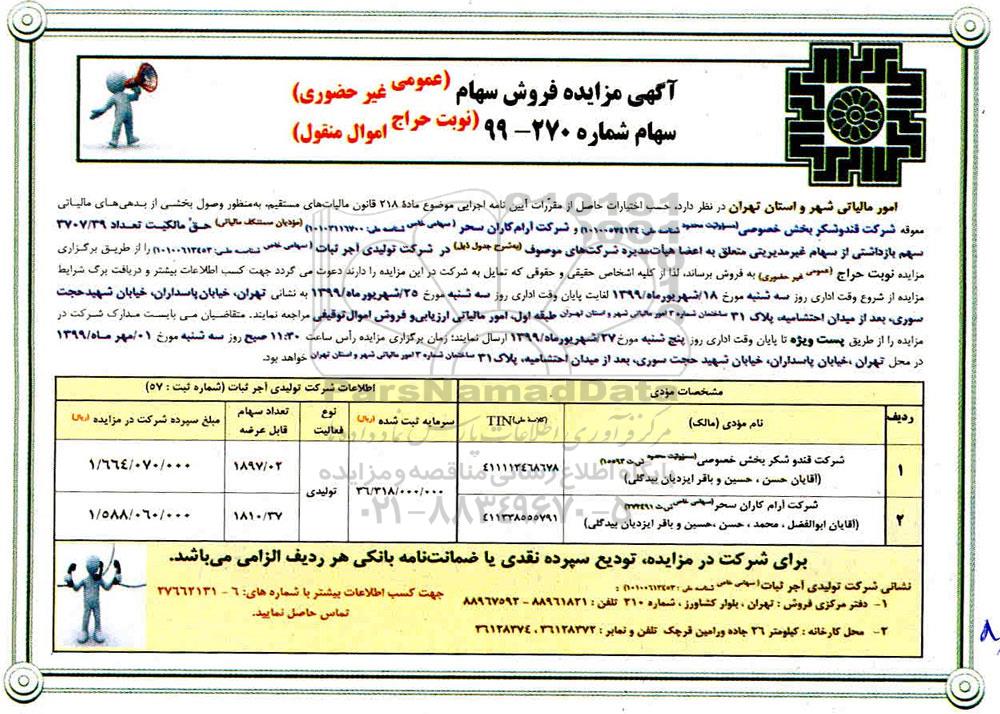 آگهی مزایده فروش سهام (عمومی غیر حضوری)
سهام شماره ۲۷۰-۹۹ (نوبت حراج اموال منقول)
امور مالیاتی شهر و استان تهران در نظر دارد، حسب اختیارات حاصل از مقررات آیین نامه اجرایی موضوع مادة ۲۱۸ قانون مالیات‌های مستقیم، به‌منظور وصول بخشی از بدهی‌های مالیاتی
معوقه شرکت قندوشکر بخش خصوصی (مسؤولیت محدود شناسه ملی: ۱۰۱۰۰۵۷۴۱۳۴) و شرکت آرام‌کاران سحر (سهامی خاص شناسه ملی: ۱۰۱۰۲۱۱۶۷۰۰) (مؤدیان مستنکف مالیاتی) حق مالکیت تعداد ۳۷۰۷/۳۹
سهم بازداشتی از سهام غیرمدیریتی متعلق به اعضا هیأت‌مدیره شرکت‌های موصوف (به‌شرح جدول ذیل) در شرکت تولیدی آجر ثبات (سهامی خاص شناسه ملی: ۱۰۱۰۰۶۱۳۴۵۳) را از طریق برگزاری
مزایده نوبت حراج (عمومی غیر حضوری) به فروش برساند، لذا از کلیه اشخاص حقیقی و حقوقی که تمایل به شرکت در این مزایده را دارند دعوت می گردد جهت کسب اطلاعات بیشتر و دریافت برگ شرایط
مزایده از شروع وقت اداری روز سه شنبه مورخ ۱۸/شهریورماه/۱۳۹۹ لغایت پایان وقت اداری روز سه شنبه مورخ ۲۵/شهریورماه/۱۳۹۹ به نشانی تهران، خیابان پاسداران، خیابان شهیدحجت
سوری، بعد از میدان احتشامیه، پلاک ۳۱ ساختمان شماره ۳ امور مالیاتی شهر و استان تهران طبقه اول، امور مالیاتی ارزیابی و فروش اموال توقیفی مراجعه نمایند. متقاضیان می بایست مدارک شرکت در
مزایده را از طریق پست ویژه تا پایان وقت اداری روز پنج شنبه مورخ ۲۷/شهریورماه/۱۳۹۹ ارسال نمایند؛ زمان برگزاری مزایده رأس ساعت ۱۱:۳۰ صبح روز سه شنبه مورخ ۰۱/مهر ماه/۱۳۹۹
در محل تهران، خیابان پاسداران، خیابان شهید حجت سوری، بعد از میدان احتشامیه، پلاک ۳۱ ساختمان شماره ۳ امور مالیاتی شهر و استان تهران خواهد بود.
ردیف مشخصات مؤدی اطلاعات شرکت تولیدی آجر ثبات (شماره ثبت: ۵۷)
نام مؤدی (مالک) (کلاسه ملی) TIN سرمایه ثبت شده (ریال) نوع فعالیت تعداد سهام قابل عرضه مبلغ سپرده شرکت در مزایده (ریال)
۱ شرکت قندو شکر بخش خصوصی (مسؤولیت محدود) ۴۱۱۱۱۳۴۶۸۶۷۸ ۳۶/۳۱۸/۰۰۰/۰۰۰ تولیدی ۱۸۹۷/۰۲ ۱/۶۶۴/۰۷۰/۰۰۰
(آقایان حسن، حسین و باقر ایزدیان بیدگلی)
۲ شرکت آرام کاران سحر (سهامی خاص) ۴۱۱۳۳۸۵۵۵۷۹۱ ۱۸۱۰/۳۷ ۱/۵۸۸/۰۶۰/۰۰۰
(آقایان ابوالفضل، محمد، حسن، حسین و باقر ایزدیان بیدگلی)
برای شرکت در مزایده، تودیع سپرده نقدی یا ضمانت‌نامه بانکی هر ردیف الزامی می‌باشد.
نشانی شرکت تولیدی آجر ثبات (سهامی خاص شناسه ملی: ۱۰۱۰۰۶۱۳۴۵۳):
۱- دفتر مرکزی فروش: تهران، بلوار کشاورز، شماره ۲۱۰ تلفن: ۸۸۹۶۱۸۲۱ - ۸۸۹۶۷۵۹۲
۲- محل کارخانه: کیلومتر ۲۶ جاده ورامین قرچک تلفن و نمابر: ۳۶۱۲۸۳۷۲، ۳۶۱۲۸۳۷۴
جهت کسب اطلاعات بیشتر با شماره های: ۶ - ۲۷۶۶۲۱۳۱
تماس حاصل نمایید.
ParsNamadData
مرکز فرآوری اطلاعات پارس نماد داده ها
پایگاه اطلاع رسانی مناقصه و مزایده
۰۲۱-۸۸۳۴۹۶۷۰-۵